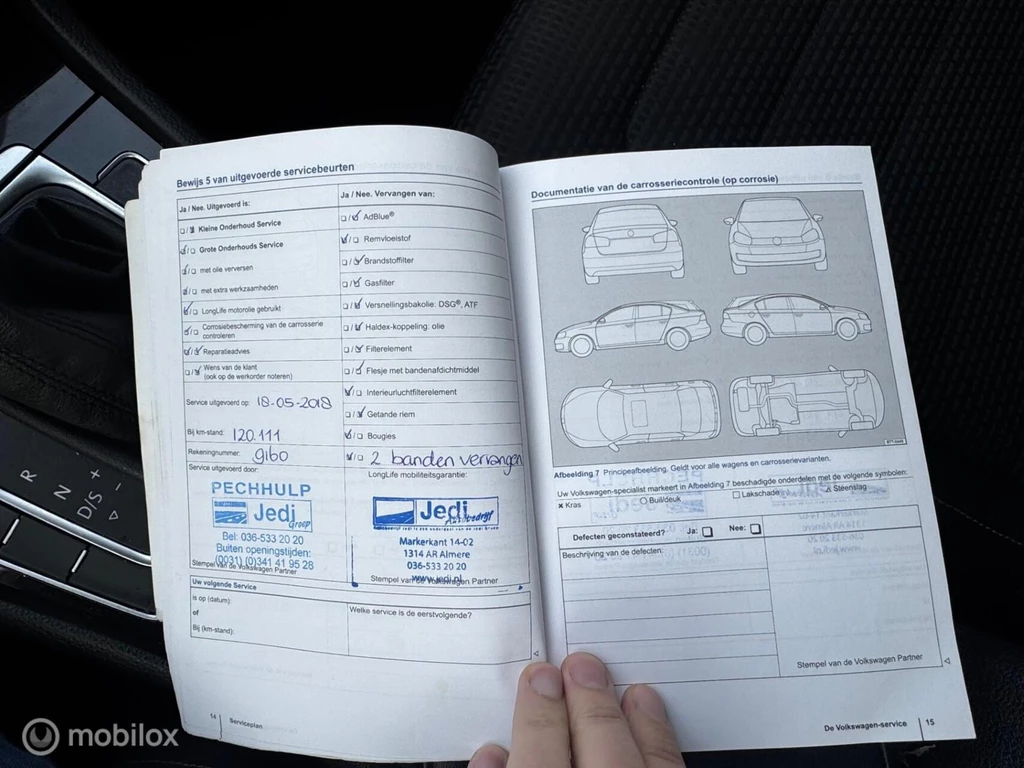 Bewijs 5 van uitgevoerde servicebeurten
Ja / Nee. Uitgevoerd is:
Kleine Onderhoud Service
Grote Onderhouds Service
met olie verversen
met extra werkzaamheden
LongLife motorolie gebruikt
Corrosiebescherming van de carrosserie
controleren
Reparatieadvies
Wens van de klant
(ook op de werkorder noteren)
Service uitgevoerd op: 18-05-2018
Bij km-stand: 120.111
Rekeningnummer: 9160
Service uitgevoerd door:
PECHHULP
Jedi
Groep
Bel: 036-533 20 20
Buiten openingstijden:
(0031) (0)341 41 95 28
Stempel van de Volkswagen Partner
Ja / Nee. Vervangen van:
AdBlue®
Remvloeistof
Brandstoffilter
Gasfilter
Versnellingsbakolie: DSG®, ATF
Haldex-koppeling: olie
Filterelement
Flesje met bandenafdichtmiddel
Interieurluchtfilterelement
Getande riem
Bougies
2 banden vervangen
LongLife mobiliteitsgarantie:
Jedi
Autobedrijf
Markerkant 14-02
1314 AR Almere
036-533 20 20
www.jedi.nl
Stempel van de Volkswagen Partner
Uw volgende Service
is op (datum):
of
Bij (km-stand):
Welke service is de eerstvolgende?
14
Serviceplan
Documentatie van de carrosseriecontrole (op corrosie)
Afbeelding 7 Principeafbeelding. Geldt voor alle wagens en carrosserievarianten.
Uw Volkswagen-specialist markeert in Afbeelding 7 beschadigde onderdelen met de volgende symbolen:
× Kras
Buil/deuk
Lakschade
Steenslag
Defecten geconstateerd? Ja: Nee:
Beschrijving van de defecten:
Stempel van de Volkswagen Partner
De Volkswagen-service
15
R
N
D/S
+
-
mobilox